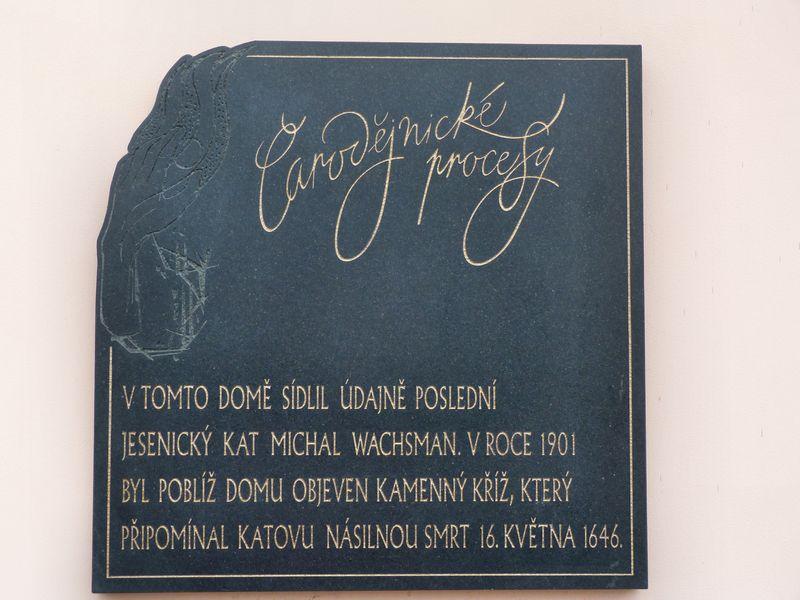 Čarodějnické
procesy
V TOMTO DOMĚ SÍDLIL ÚDAJNĚ POSLEDNÍ
JESENICKÝ KAT MICHAL WACHSMAN. V ROCE 1901
BYL POBLÍŽ DOMU OBJEVEN KAMENNÝ KŘÍŽ, KTERÝ
PŘIPOMÍNAL KATOVU NÁSILNOU SMRT 16. KVĚTNA 1646.